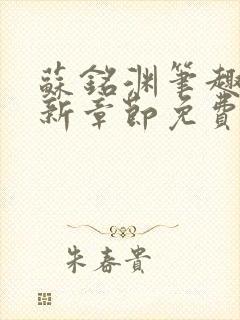 蘇銘渊筆趣
新章節免費
朱春貴